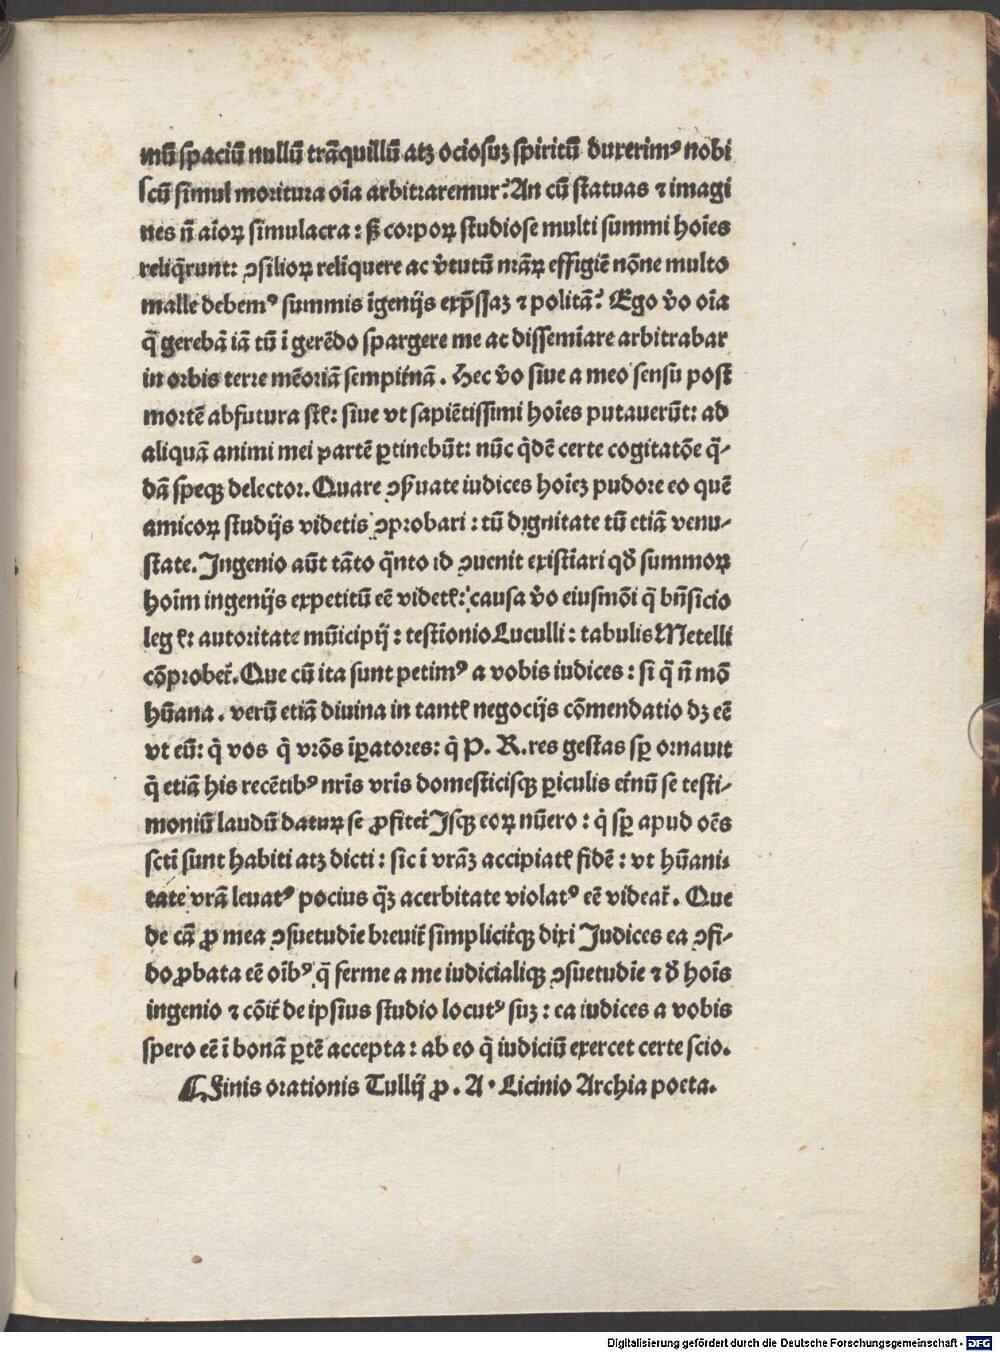 mū spaciū nullū trāquillū atqꝫ ociosuꝫ spiritū duxerimꝰ nobi
scū simul moritura oīa arbitraremur? An cū statuas ⁊ imagi
nes nō aīoꝝ simulacra: sꝫ corpoꝝ studiose multi summi hoīes
reliq̄runt: ꝯsilioꝝ relīquere ac v̓tutū nrāꝝ effigiē nōne multo
malle debemꝰ summis īgenijs exp̄ssaꝫ ⁊ politā? Ego v̓o oīa
q̄ gerebā iā tū ī gerēdo spargere me ac dissemīare arbitrabar
in orbis terre mēoriā sempit̓nā. Hec v̓o siue a meo sensu post
mortē abfutura sūt: siue vt sapiētissimi hoīes putauerūt: ad
aliquā animi mei partē ꝑtinebūt: nūc q̇dē certe cogitatōe q̄-
dā speqꝫ delector. Quare ꝯẜuate iudices hoīeꝫ pudore eo quē
amicoꝝ studijs videtis ꝯprobari: tū dignitate tū etiā venu-
state. Ingenio aūt tāto q̄nto id ꝯuenit existīari qd̓ summoꝝ
hoīm ingenijs expetitū eē videtꝭ: causa v̓o eiusmōi q̄ bn̄ficio
legꝭ: autoritate mūicipij: testīonio Luculli: tabulis Metelli
cōprobet̓. Que cū ita sunt petimꝰ a vobis iudices: si q̄ nō mō
hūana. verū etiā diuina in tantꝭ negocijs cōmendatio dꝫ eē
vt eū: q̇ vos q̇ vrōs īꝑatores: q̇ P. R. res gestas sꝑ ornauit
q̇ etiā his recētibꝰ nrīs vrīs domesticisqꝫ ꝑiculis et̓nū se testi-
moniū laudū daturꝝ se ꝓfitet̓ Isqꝫ eoꝝ nūero: q̇ sꝑ apud oēs
sctī sunt habiti atqꝫ dicti: sic ī vrāꝫ accipiatꝭ fidē: vt hūani-
tate vrā leuatꝰ pocius q̄ꝫ acerbitate violatꝰ eē videat̓. Que
de cā ꝓ mea ꝯsuetudīe breuit̓ simplicit̓qꝫ dixi Iudices ea ꝯfi-
do ꝓbata eē oībꝰ q̄ ferme a me iudicialiqꝫ ꝯsuetudīe ⁊ d̓ hoīs
ingenio ⁊ cōit̓ de ipsius studio locutꝰ suꝫ: ea iudices a vobis
spero eē ī bonā ꝑtē accepta: ab eo q̇ iudiciū exercet certe scio.
¶ Finis orationis Tullij ꝓ. A. Licinio Archia poeta.
Digitalisierung gefördert durch die Deutsche Forschungsgemeinschaft - DFG